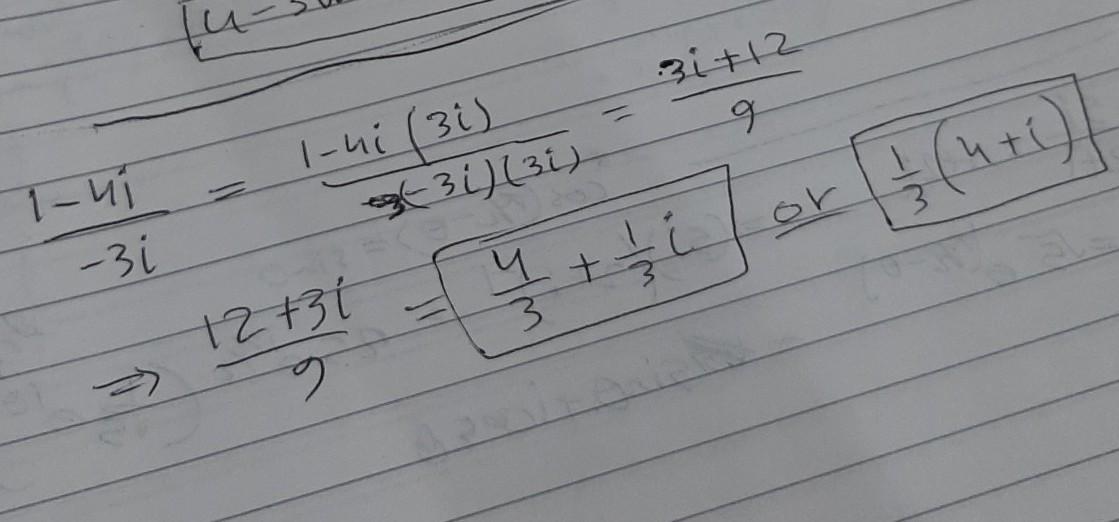 1-4i/-3i = 1-4i(3i)/(-3i)(3i) = 3i+12/9
⇒ 12+3i/9 = 4/3 + 1/3 i or 1/3 (4+i)